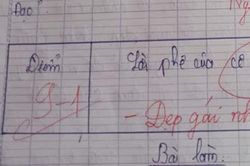 Đạo
Điểm
Lời phê của cô
9-1
- Đẹp gái
Bài làm: